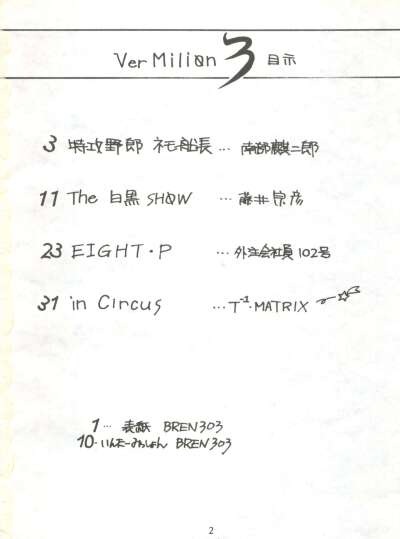 Ver Milion 3 目示
3 特攻野郎 ネモ船長 … 南部麒二郎
11 The 白黒 SHOW … 藤井宗彦
23 EIGHT・P … 外注会社員 102号
31 in Circus … T⁻¹・MATRIX
1 … 表紙 BREN 303
10・いんたーみっしょん BREN 303
2